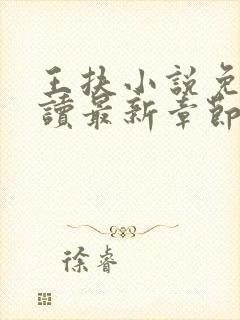 王扶小說免
讀最新章節
徐睿